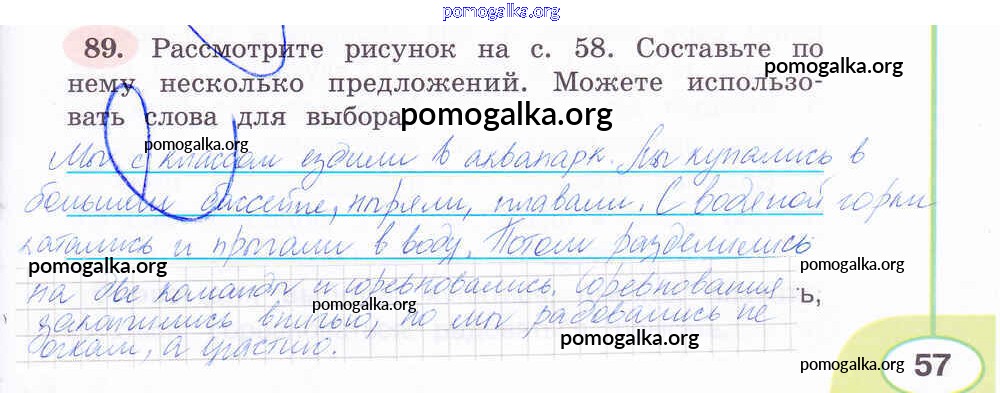 pomogalka.org
89. Рассмотрите рисунок на с. 58. Составьте по
pomogalka.org
нему несколько предложений. Можете использо-
вать слова для выбора
pomogalka.org
pomogalka.org
Мы с классом ездили в аквапарк. Мы купались в
pomogalka.org
большом бассейне, ныряли, плавали. С водяной горки
катались и прыгали в воду. Потом разделились
pomogalka.org
pomogalka.org
на две команды и соревновались. Соревнования
ь,
pomogalka.org
закончились вничью, но мы радовались не
pomogalka.org
очкам, а участию.
pomogalka.org
pomogalka.org
57